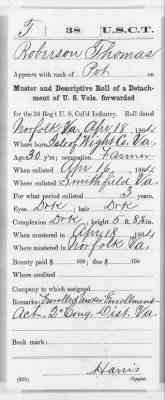 T 38 U.S.C.T.
Roberson Thomas
Appears with rank of Pvt on
Muster and Descriptive Roll of a Detach-
ment of U. S. Vols. forwarded
for the 38 Reg't U. S. Col'd Infantry. Roll dated
Norfolk Va, Apr 18, 1864.
Where born Isle of Wight Co. Va
Age 30 y'rs; occupation Farmer
When enlisted Apr 16, 1864.
Where enlisted Smithfield Va.
For what period enlisted 3 years.
Eyes Drk; hair Drk
Complexion Drk; height 5 ft. 8½ in.
When mustered in Apr 18, 1864.
Where mustered in Norfolk Va.
Bounty paid $ 100; due $ 100
Where credited
Company to which assigned
Remarks: Enrolled under Enrollment
Act, 2" Cong. Dist. Va.
Book mark:
Harris
Copyist.